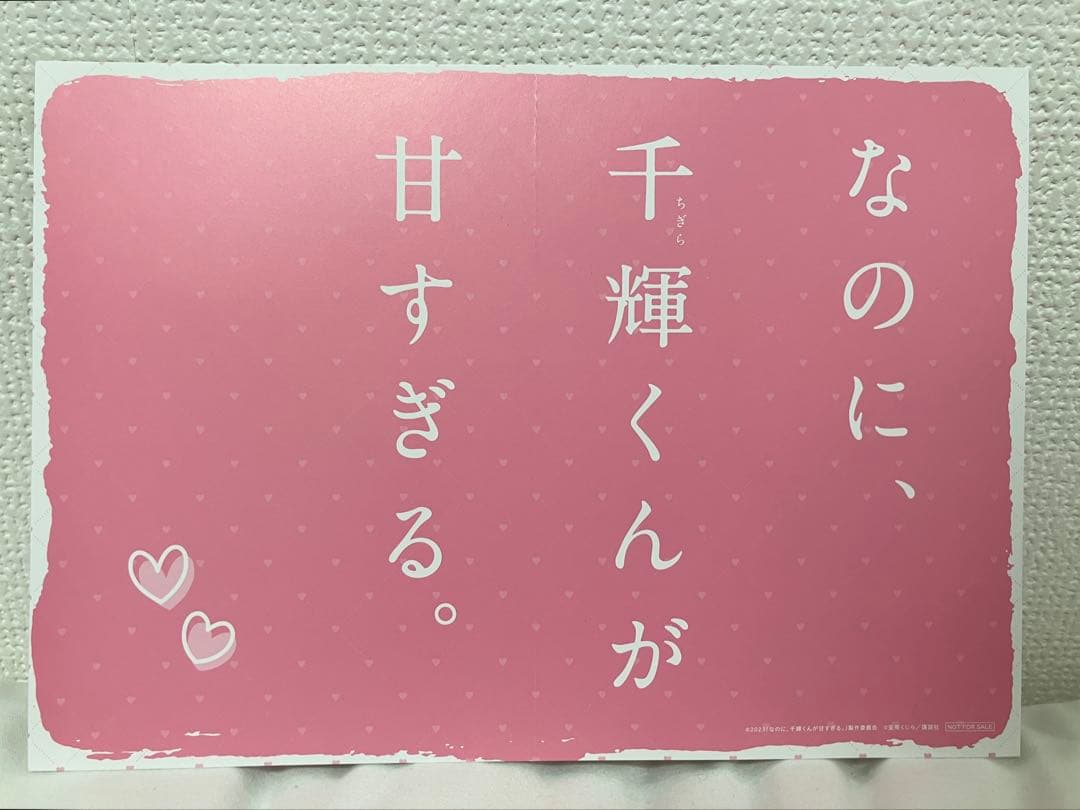 なのに、
千輝くんが
ちぎら
甘すぎる。
©2023「なのに、千輝くんが甘すぎる。」製作委員会 ©亜南くじら／講談社
NOT FOR SALE